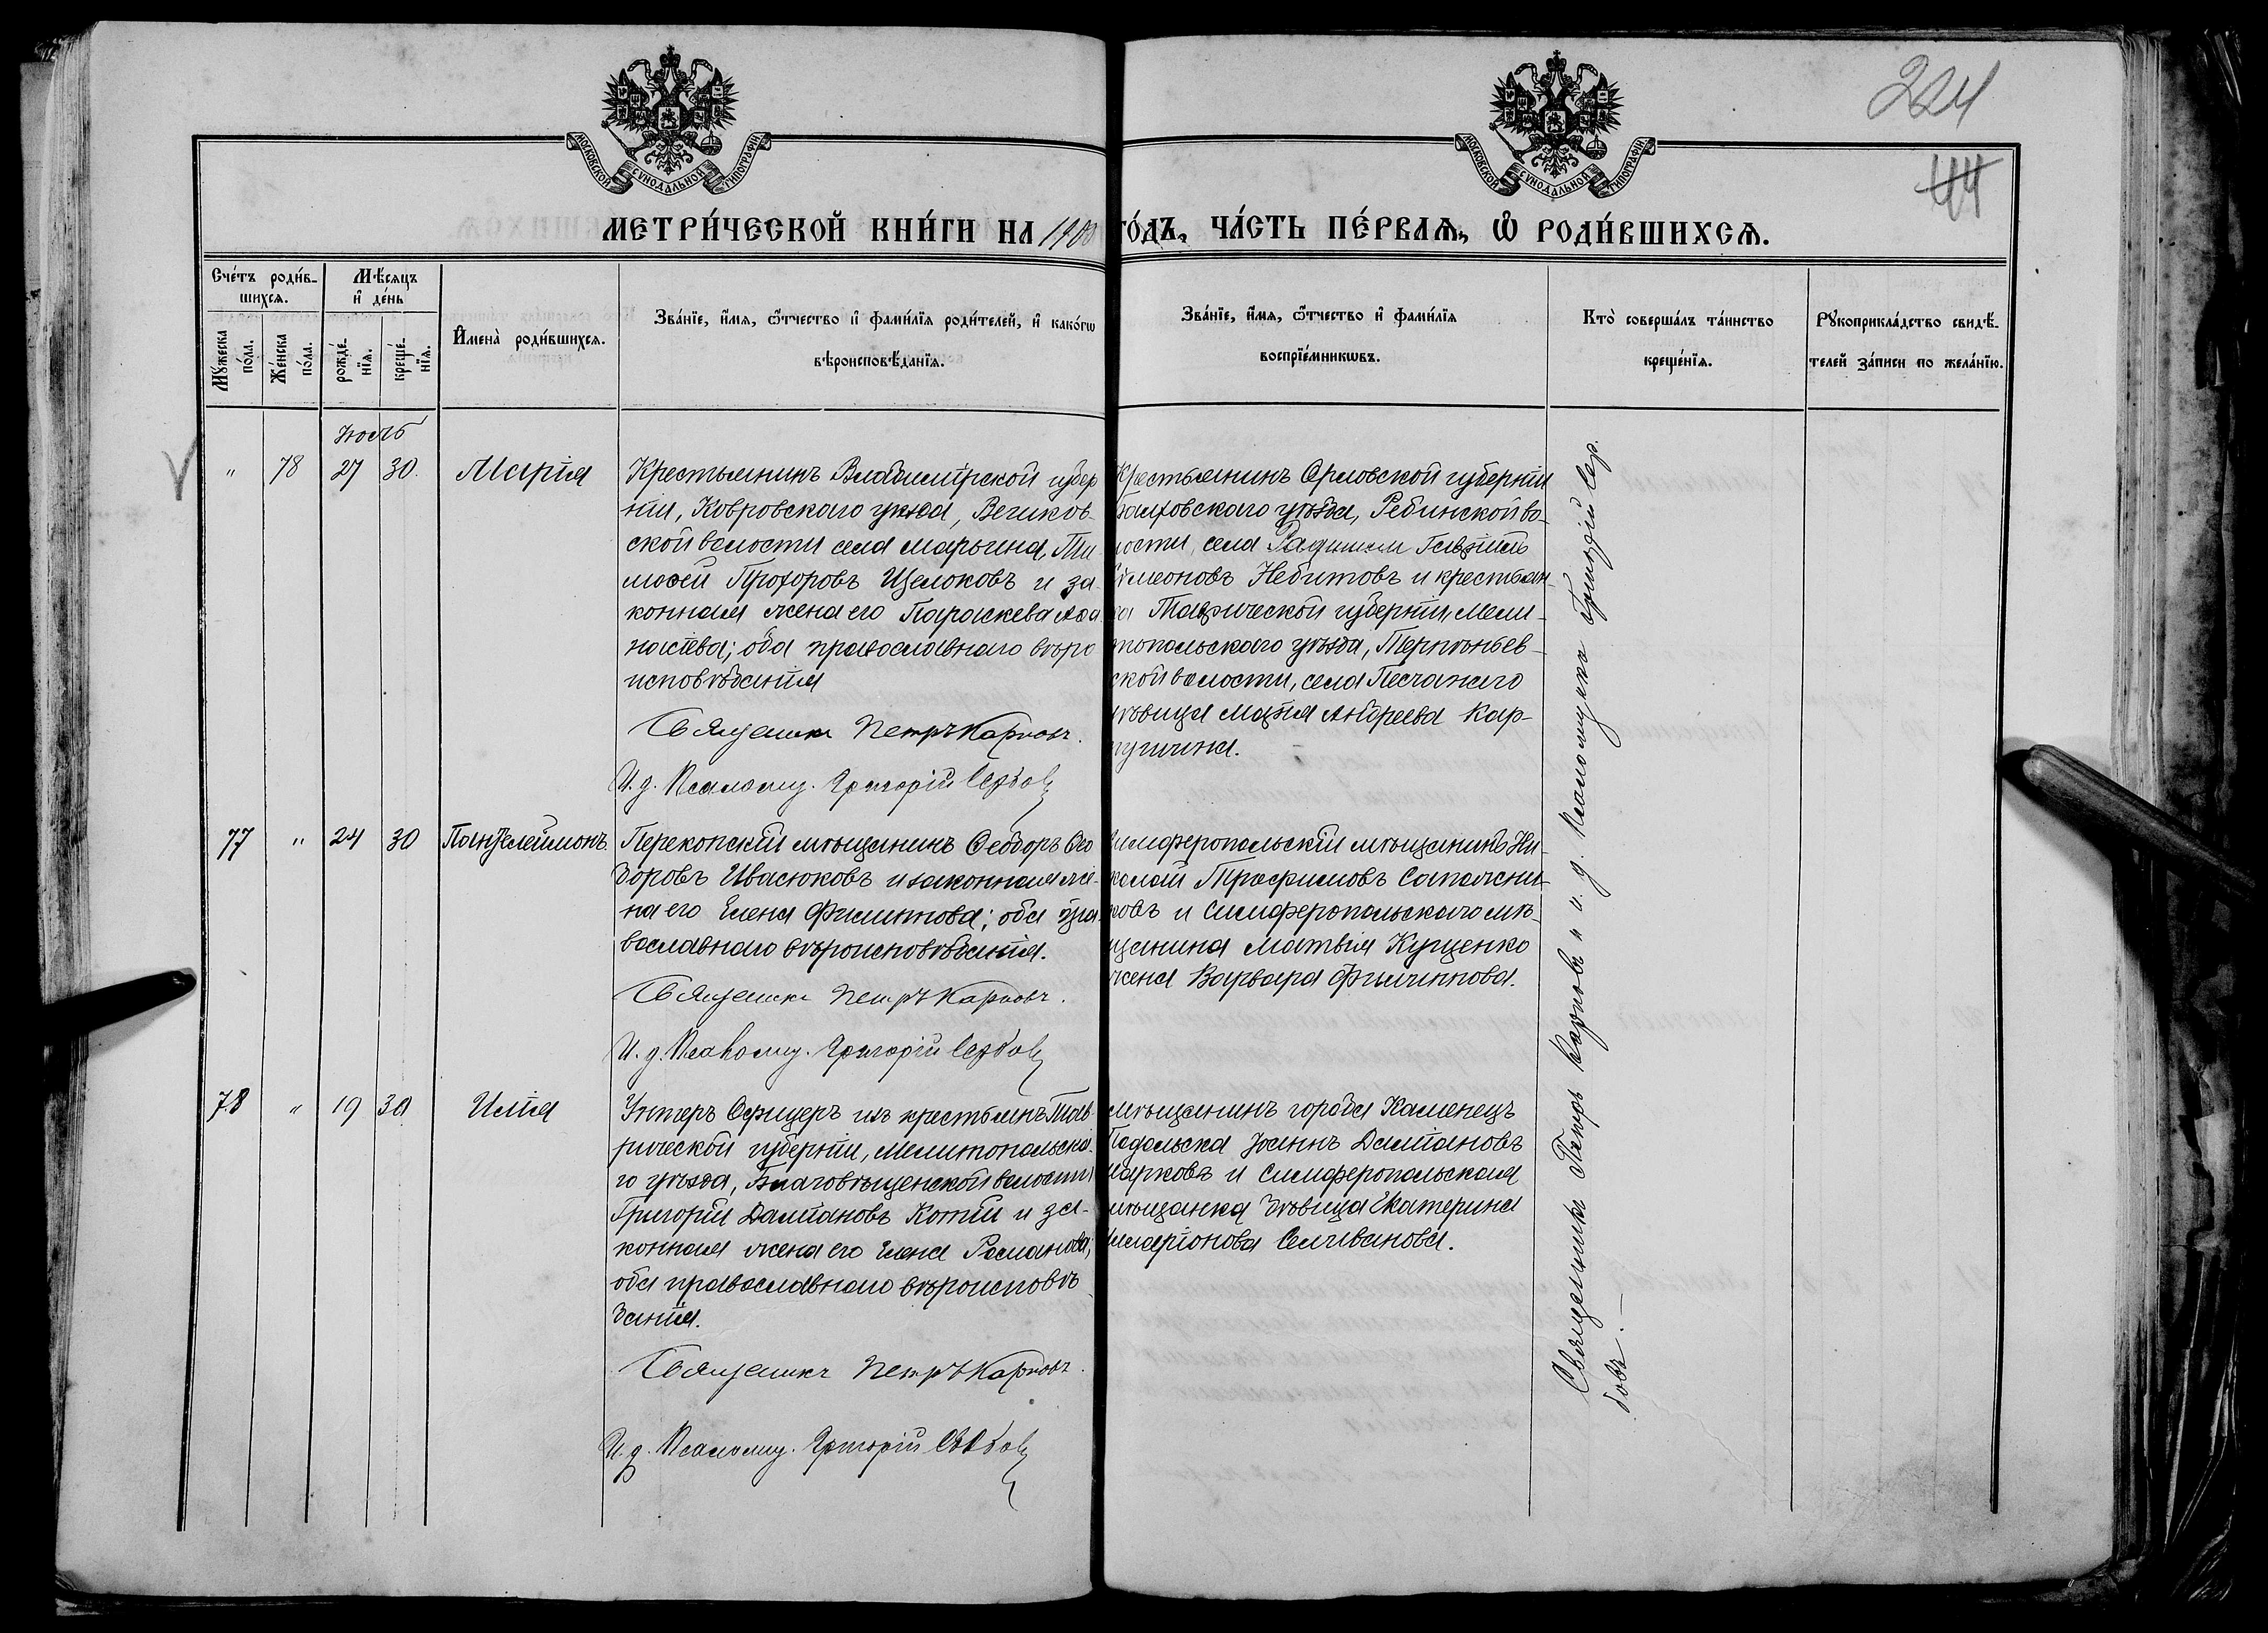 224
44
МОСКОВСКОЙ СѴНОДАЛЬНОЙ ТИПОГРАФІИ
МОСКОВСКОЙ СѴНОДАЛЬНОЙ ТИПОГРАФІИ
МЕТРИ́ЧЕСКОЙ КНИ́ГИ НА 1900 ГО́ДЪ, ЧА́СТЬ ПЕ́РВАѦ, Ѡ РОДИ́ВШИХСѦ.
Сче́тъ роди́в-
шихсѧ.
Мѣ́сяцъ
и де́нь
Мꙋ́жеска
по́ла.
Же́нска
по́ла.
рожде́-
нїѧ.
креще́-
нїѧ.
Имена̀ роди́вшихсѧ.
Зва́нїе, и́мѧ, ѻ҆́тчество и фами́лїѧ роди́телей, и како́гѡ
вѣроисповѣ́данїѧ.
Зва́нїе, и́мѧ, ѻ҆́тчество и фами́лїѧ
воспрїе́мникѡвъ.
Кто̀ соверша́лъ та́инство
креще́нїѧ.
Рꙋкоприкла́дство свидѣ́-
телей за́писи по жела́нїю.
Іюль
" 78 27 30. Марія
Крестьянинъ Владимірской губер
ніи, Ковровскаго уѣзда, Величков-
ской волости села Марьина, Ти
моѳей Прохоровъ Щелоковъ и за-
конная жена его Параскева Аѳа
насіева; оба православнаго вѣро
исповѣданія
Священникъ Петръ Карповъ.
И. д. Псаломщ. Григорій Сербовъ
Крестьянинъ Орловской губерніи
Болховскаго уѣзда, Ребинской во-
лости, села
Симеоновъ Небитовъ и крестьян-
ка Таврической губерніи, Мели-
топольскаго уѣзда, Терпѣньев-
ской волости, села Песчанаго
дѣвица Марія Андреева Кар-
пушина.
77 " 24 30 Пантелеимонъ
Перекопскій мѣщанинъ Ѳеодоръ Ѳео
доровъ Ивасюковъ и законная же-
на его Елена Филиппова; оба пра
вославнаго вѣроисповѣданія.
Священникъ Петръ Карповъ.
И. д. Псаломщ. Григорій Сербовъ
Симферопольскій мѣщанинъ Ни-
колай Трофимовъ Сапожни-
ковъ и Симферопольскаго мѣ-
щанина Матвія Куценко
жена Варвара Филиппова.
78 " 19 30 Илія
Унтеръ Офицеръ изъ крестьянъ Тав-
рической губерніи, Мелитопольска-
го уѣзда, Благовѣщенской волости
Григорій Даміановъ Котій и за-
конная жена его Елена Романова;
оба православнаго вѣроисповѣ
данія.
Священникъ Петръ Карповъ.
И. д. Псаломщ. Григорій Сербовъ
Мѣщанинъ города Каменецъ
Подольска Іоаннъ Даміановъ
Марковъ и Симферопольская
мѣщанка дѣвица Екатерина
Иларіонова Селиванова.
Священникъ Петръ Карповъ и и. д. псаломщика Григорій Сер-
бовъ.